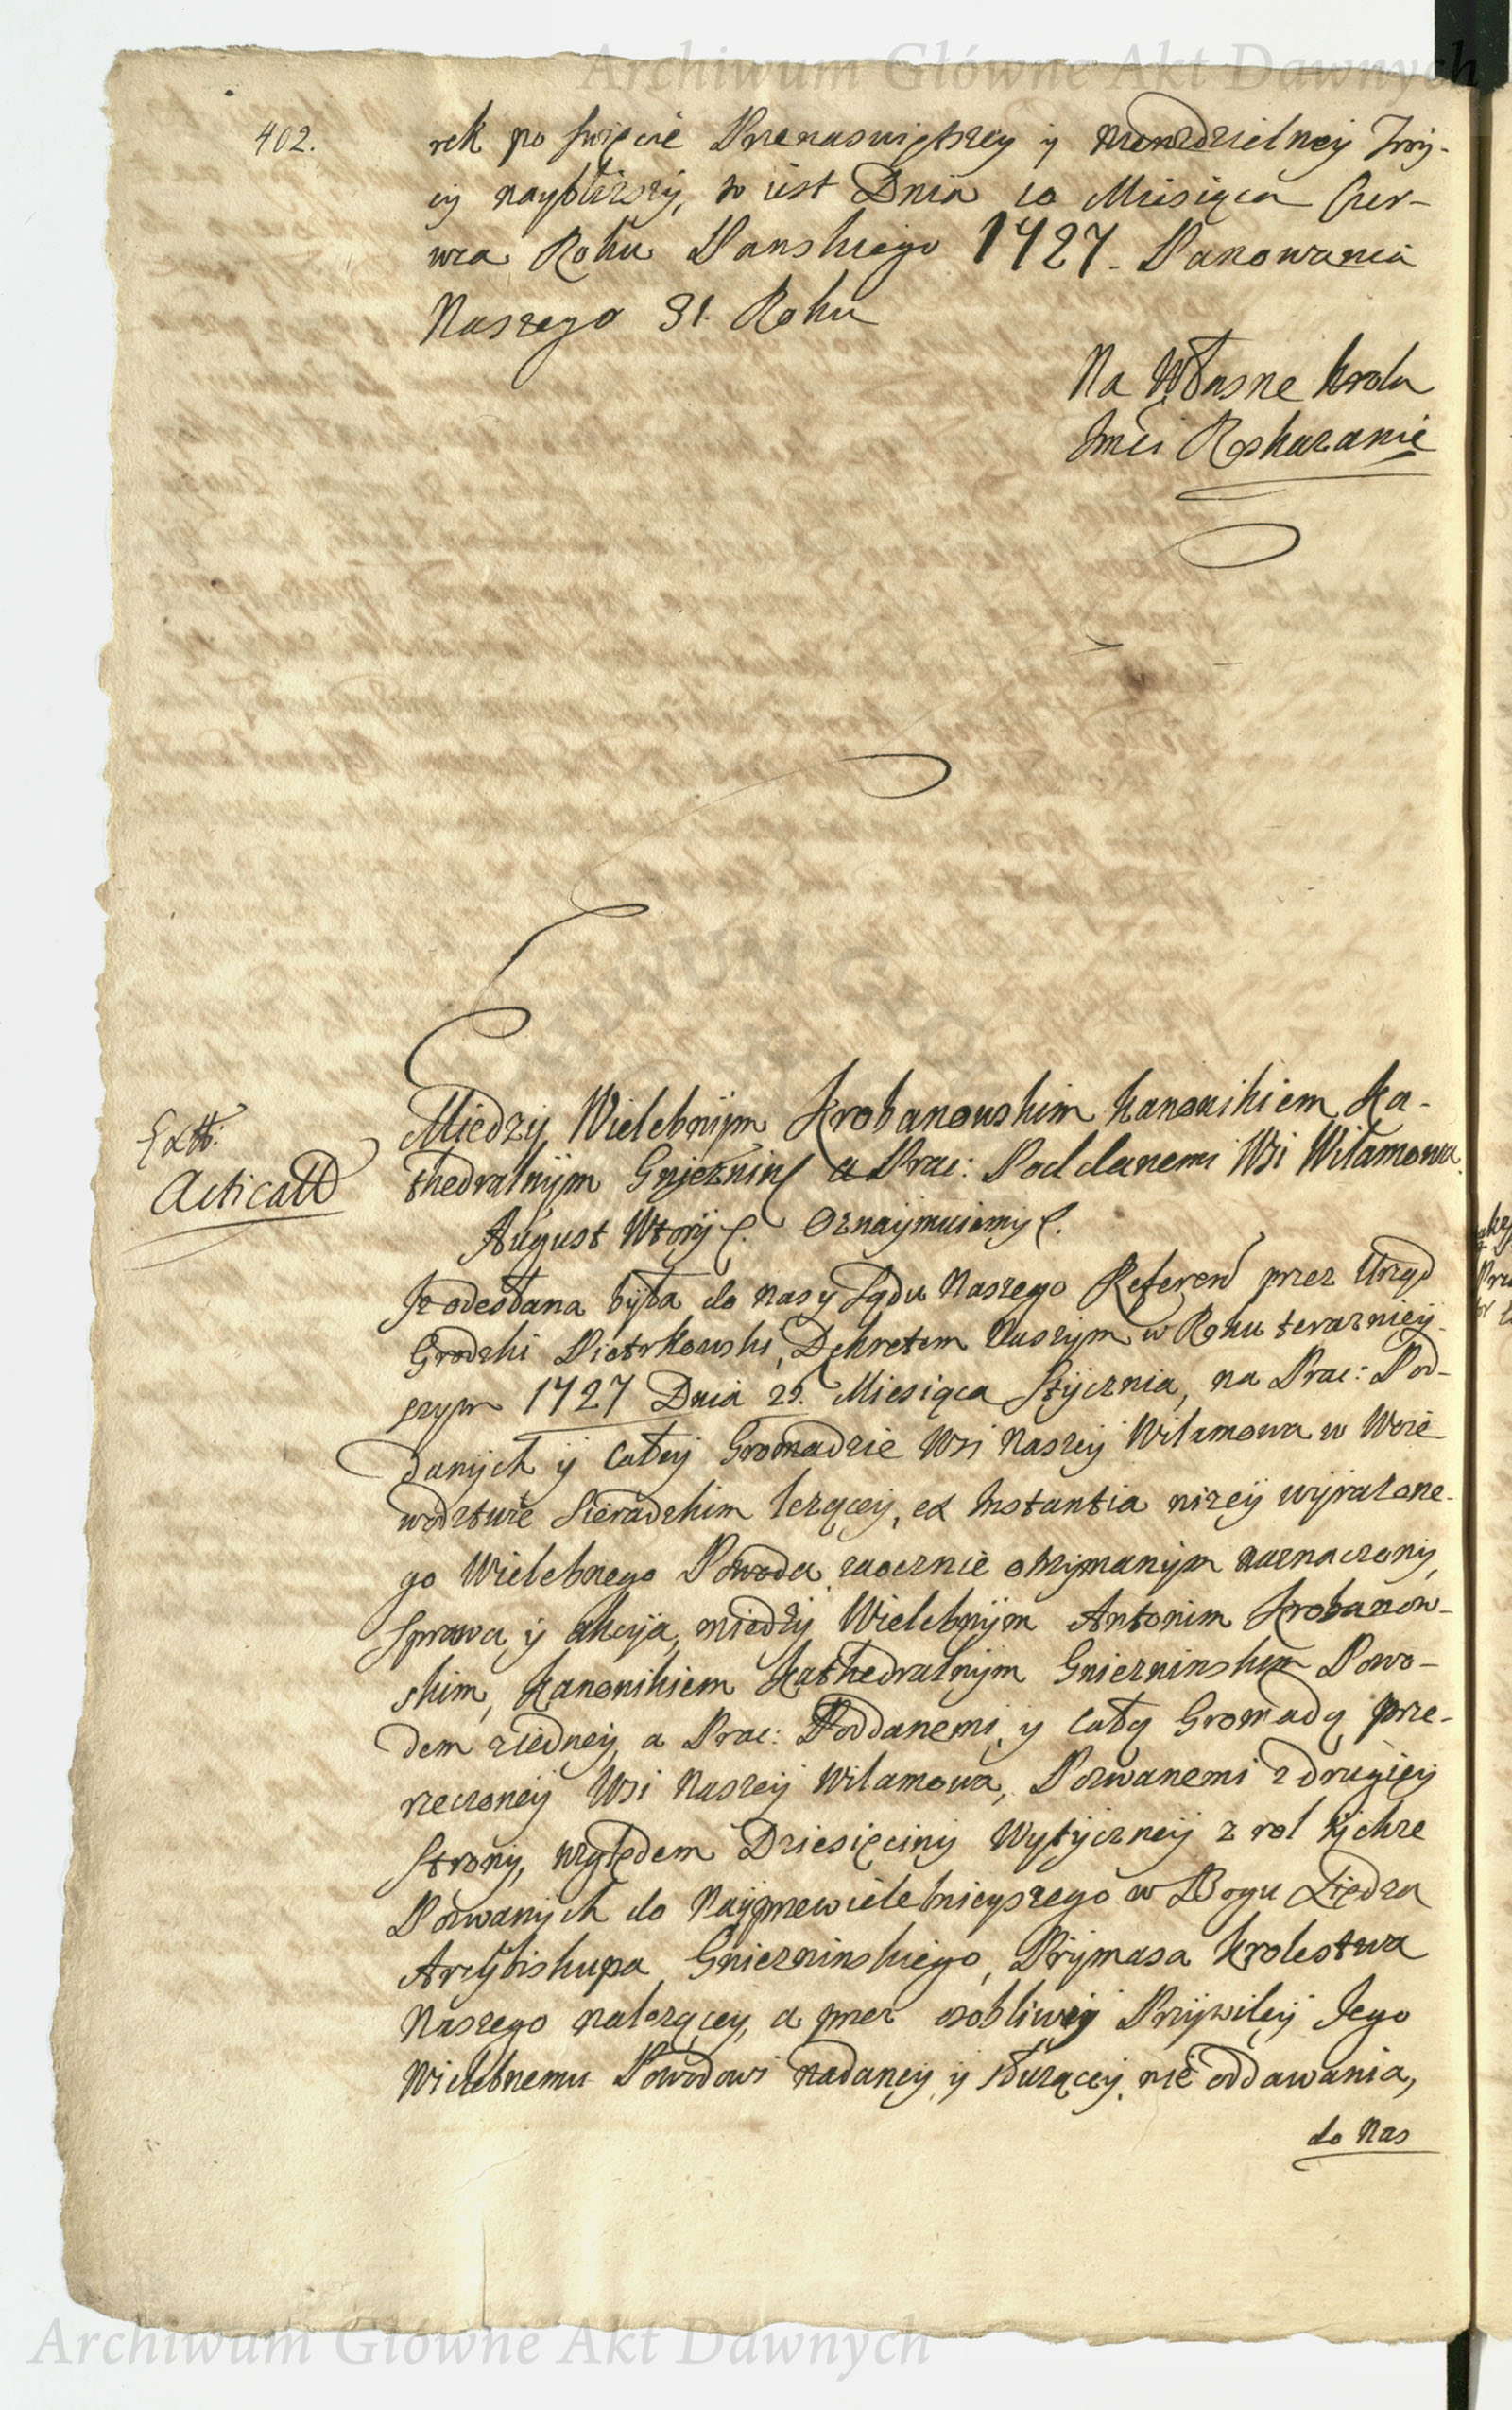 Archiwum Główne Akt Dawnych
402.
rek po swięcie Przenaswiętszey y nierozdzielney Troy-
cy nayblizszy, to iest Dnia 10 Miesiąca Czer-
wca Roku Panskiego 1727. Panowania
Naszego 31. Roku
Na Własne Krola
Jmci Roskazanie
Extt.
Acticatt
Miedzy Wielebnym Krobanowskim Kanonikiem Ka-
thedralnym Gnieznin a Prac: Poddanemi Wsi Wilamowa
August Wtory Oznaymuiemy
Iz odesłana była do nas y Sądu Naszego Referen przez Urząd
Grodzki Piotrkowski, Dekretem Naszym w Roku terazniey-
szym 1727 Dnia 29. Miesiąca Stycznia, na Prac: Pod-
danych y Całey Gromadzie Wsi Naszey Wilamowa w Woie
wodztwie Sieradzkim lezącey, ex Instantia nizey wyrazone-
go Wielebnego Powoda zaocznie otrzymanym naznaczony,
Sprawa y Akcya, miedzy Wielebnym Antonim Krobanow-
skim, Kanonikiem Kathedralnym Gniezninskim Powo-
dem ziedney, a Prac: Poddanemi y Całą Gromadą prze-
rzeczoney Wsi Naszey Wilamowa, Pozwanemi z drugiey
Strony, względem Dziesięciny Wytyczney z rol tychze
Pozwanych do Nayprzewielebnieyszego w Bogu Xiędza
Arcybiskupa Gniezninskiego, Prymasa Krolestwa
Naszego nalezącey, a przez osobliwy Przywiley Jego
Wielebnemu Powodowi nadaney y słuzącey, nie oddawania,
do Nas
Archiwum Główne Akt Dawnych